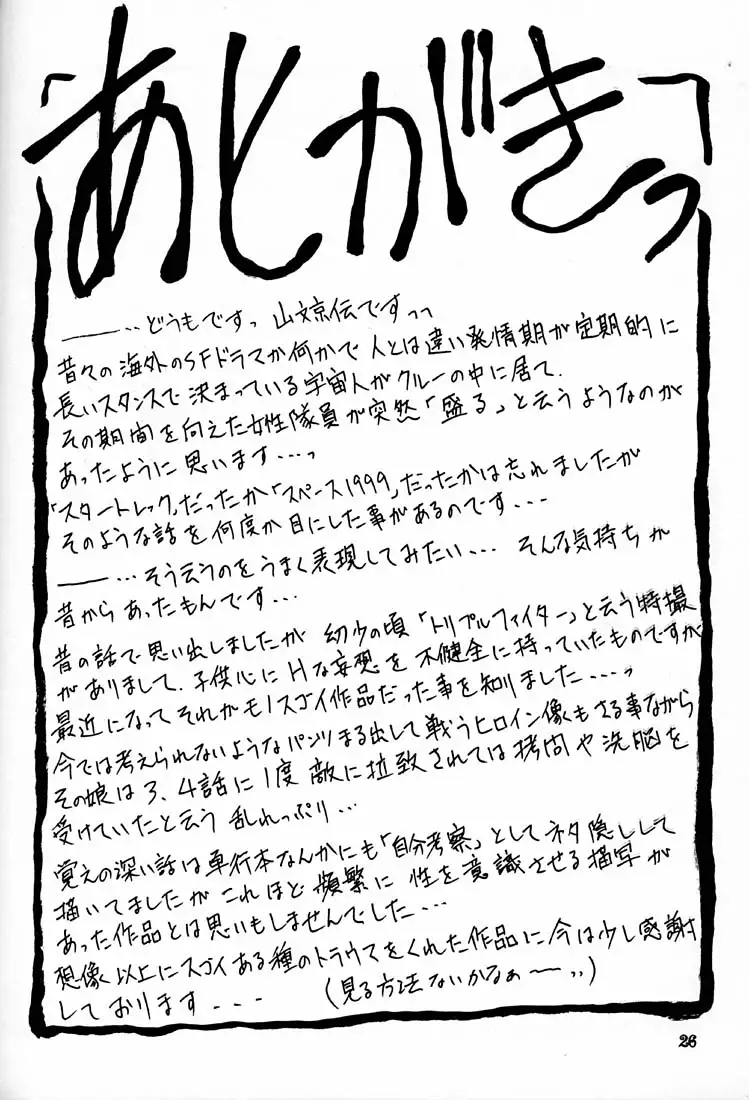 「あとがきっ」
――‥どうもですっ 山文京伝ですっっ
昔々の海外のSFドラマか何かで人とは違い発情期が定期的に
長いスタンスで決まっている宇宙人がクルーの中に居て.
その期間を向えた女性隊員が突然「盛る」と云うようなのが
あったように思います‥‥っ
「スタートレック」だったか「スペース1999」だったかは忘れましたが
そのような話を何度か目にした事があるのです‥‥
――‥そう云うのをうまく表現してみたい‥‥ そんな気持ちが
昔からあったもんです‥‥
昔の話で思い出しましたが 幼少の頃「トリプルファイター」と云う特撮
がありまして.子供心にHな妄想を不健全に持っていたものですが
最近になってそれがモノスゴイ作品だった事を知りました‥‥っ
今では考えられないようなパンツまる出しして戦うヒロイン像もさる事ながら
その娘は3、4話に1度 敵に拉致されては拷問や洗脳を
受けていたと云う 乱れっぷり‥‥
覚えの深い話は単行本なんかにも「自分考察」としてネタ隠しして
描いてましたが これほど頻繁に 性を意識させる描写が
あった作品とは思いもしませんでした‥‥
想像以上にスゴイある種のトラウマをくれた作品に今は少し感謝
しております‥‥ (見る方法ないかなぁー‥っ)
26